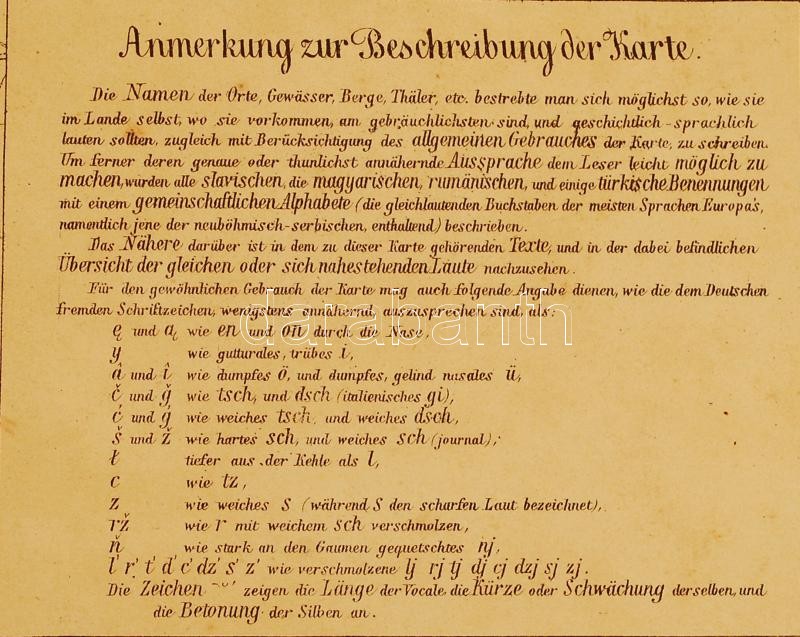 Anmerkung zur Beschreibung der Karte.
Die Namen der Orte, Gewässer, Berge, Thäler, etc. bestrebte man sich möglichst so, wie sie
im Lande selbst, wo sie vorkommen, am gebräuchlichsten sind, und geschichtlich-sprachlich
lauten sollten, zugleich mit Berücksichtigung des allgemeinen Gebrauches der Karte, zu schreiben.
Um ferner deren genaue oder thunlichst annähernde Aussprache dem Leser leicht möglich zu
machen, würden alle slavischen, die magyarischen, rumänischen, und einige türkische Benennungen
mit einem gemeinschaftlichen Alphabete (die gleichlautenden Buchstaben der meisten Sprachen Europa's,
namentlich jene der neuböhmisch-serbischen, enthaltend) beschrieben.
Das Nähere darüber ist in dem zu dieser Karte gehörenden Texte, und in der dabei befindlichen
Übersicht der gleichen oder sich nahestehenden Laute nachzusehen.
Für den gewöhnlichen Gebrauch der Karte mag auch folgende Angabe dienen, wie die dem Deutschen
fremden Schriftzeichen, wenigstens annähernd, auszusprechen sind, als:
ę und ą wie en und on durch die Nase,
y wie gutturales, trübes i,
â und î wie dumpfes ö, und dumpfes, gelind nasales ü,
č und ğ wie tsch, und dsch (italienisches gi),
ć und ǵ wie weiches tsch, und weiches dsch,
š und ž wie hartes sch, und weiches sch (journal),
ł tiefer aus der Kehle als l,
c wie tz,
z wie weiches s (während s den scharfen Laut bezeichnet),
rž wie r mit weichem sch verschmolzen,
ň wie stark an den Gaumen gequetschtes nj,
l' r' t' d' c' dz' s' z' wie verschmolzene lj rj tj dj cj dzj sj zj.
Die Zeichen ¯ ˘ ' zeigen die Länge der Vocale, die Kürze oder Schwächung derselben, und
die Betonung der Silben an.
darabanth